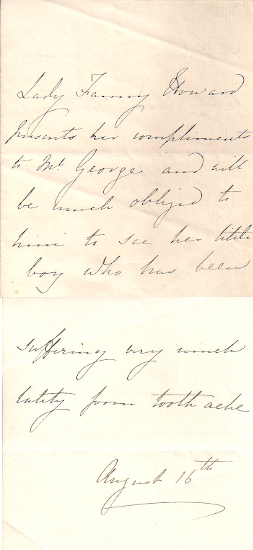 Lady Fanny Howard
presents her compliments
to Mr. George and will
be much obliged to
him to see her little
boy who has been
suffering very much
lately from tooth ache
August 16th